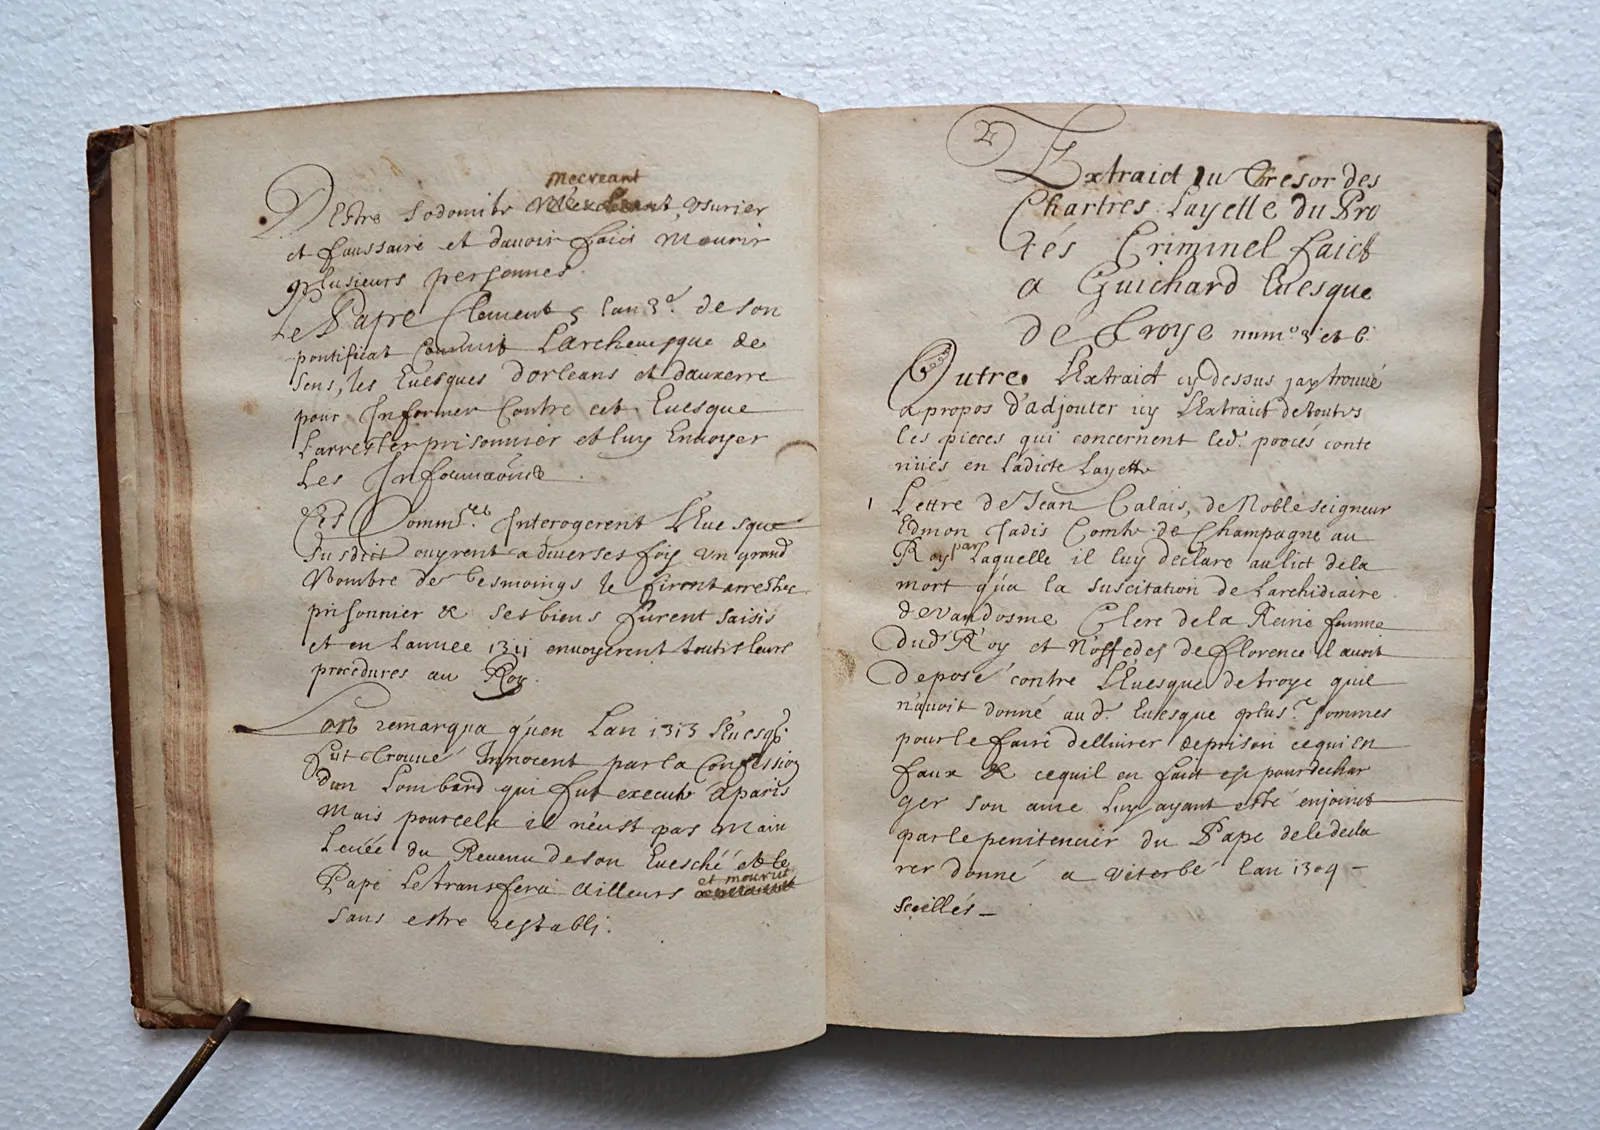 Destre Sodomite mecreant, usurier
et faussaire et davoir faict mourir
plusieurs personnes.
Le Pape Clement 5 lan 3e. de son
pontificat commit Larchevesque de
Sens, les Evesques Dorleans et dauxerre
pour Informer Contre cet Evesque
Larrester prisonnier et luy Envoyer
Les Informaõns.
Ces Commres. Interogerent LEvesque
Dusdict ouyrent a diverses foy un grand
Nombre de tesmoings le firent arrester
prisonnier & ses biens furent saisis
et en Lannee 1311 envoyerent toutes leurs
procedures au Roy.
remarqua qu'en Lan 1313 lEvesq;
fut trouvé Innocent par la Confession
Dun Lombard qui fut executé a paris
Mais pour cela il n'eust pas Main
Levée du Revenu de son Evesché et le
Pape Le transfera ailleurs et mourut
sans estre restabli.
Extraict du Tresor des
Chartres Layette du Pro
cés Criminel faict
a Guichard Evesque
de Troye numo 3 et 6
Outre LExtraict cy dessus jay trouvé
a propos d'adjouter icy LExtraict de toutes
les pieces qui concernent led. procés conte
nuës en Ladicte Layette
1 Lettre de Jean Calais, de Noble seigneur
Edmon Jadis Comte de Champagne au
Roy par Laquelle il luy declare au lict de la
mort qua la suscitation de Larchidiacre
de Vandosme Clerc de la Reine femme
Dud. Roy et Noffe dei de florence il avoit
deposé contre lEvesque de troye quil
n'avoit donné aud. Evesque plusrs. sommes
pour le faire dellivrer de prison ce qui en
faux & ce quil en faict est pour dechar
ger son ame Luy ayant esté enjoinct
par le penitencier du Pape de le decla
rer donné a Viterbe lan 1309 –
Scellés –